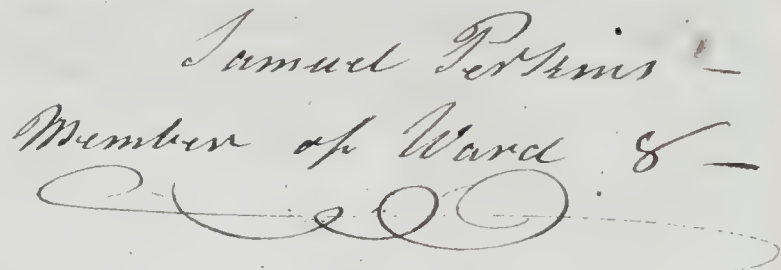 Samuel Perkins –
Member of Ward 8 –